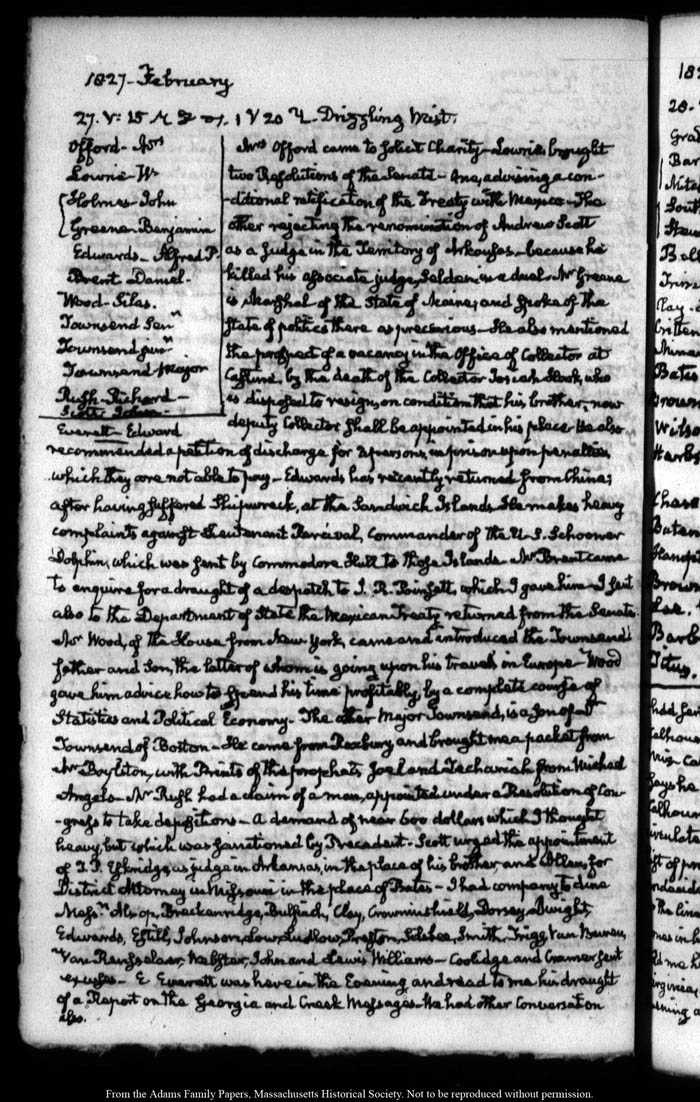 1827–February
27. V: 15 Drizzling Mist.
Offord – Mrs
Lowrie – Wm
Holmes – John
Greene – Benjamin
Edwards – Alfred P.
Brent Daniel –
Wood – Silas.
Townsend Senr
Townsend junr
Townsend Major
Rush – Richard –
Scott John –
Everett – Edward
Mrs Offord came to solicit Charity – Lowrie brought
two Resolutions of the Senate – One, advising a con-
-ditional ratification of the Treaty with Mexico – The
other rejecting the renomination of Andrew Scott
as a Judge in the Territory of Arkansas – because he
killed his associate judge, Selden in a duel – Mr Greene
is Marshal of the State of Maine; and spoke of the
State of politics there as precarious – He also mentioned
the prospect of a vacancy in the Office of Collector at
Castine, by the death of the Collector Josiah Hook, who
is disposed to resign, on condition that his brother, now
deputy Collector shall be appointed in his place. He also
recommended a petition of discharge for persons, in prison upon penalties,
which they are not able to pay – Edwards has recently returned from China;
after having suffered Shipwreck, at the Sandwich Islands. He makes heavy
complaints against Lieutenant Percival, Commander of the U.S. Schooner
Dolphin, which was sent by Commodore Hull to those Islands – Mr Brent came
to enquire for a draught of a despatch to J. R. Poinsett, which I gave him – I sent
also to the Department of State the Mexican Treaty returned from the Senate.
Mr Wood, of the House from New York, came and introduced the Townsends
father and Son, the latter of whom is going upon his travels in Europe – Wood
gave him advice how to spend his time profitably, by a complete course of
Statistics and Political Economy – The other Major Townsend, is a Son of Dr
Townsend of Boston – He came from Roxbury and brought me a packet from
Mr Boylston, with Prints of the prophets Joel and Zechariah from Michael
Angelo – Mr Rush had a claim of a man, appointed under a Resolution of Con-
-gress to take depositions – A demand of near 600 dollars which I thought
heavy, but which was sanctioned by Precedent – Scott urged the appointment
of T. T. Eskridge, as judge in Arkansas, in the place of his brother, and Allen, for
District Attorney in Missouri in the place of Bates – I had company to dine
Messrs Alsop, Breckenridge, Bulfinch, Clay, Crowninshield, Dorsey, Dwight,
Edwards, Estill, Johnson, Low, Ludlow, Preston, Silsbee, Smith, Trigg, Van Buren,
Van Rensselaer, Webster, John and Lewis Williams – Coolidge and Cramer sent
excuses – E. Everett was here in the Evening and read to me his draught
of a Report on the Georgia and Creek Messages. We had other Conversation
also.
From the Adams Family Papers, Massachusetts Historical Society. Not to be reproduced without permission.